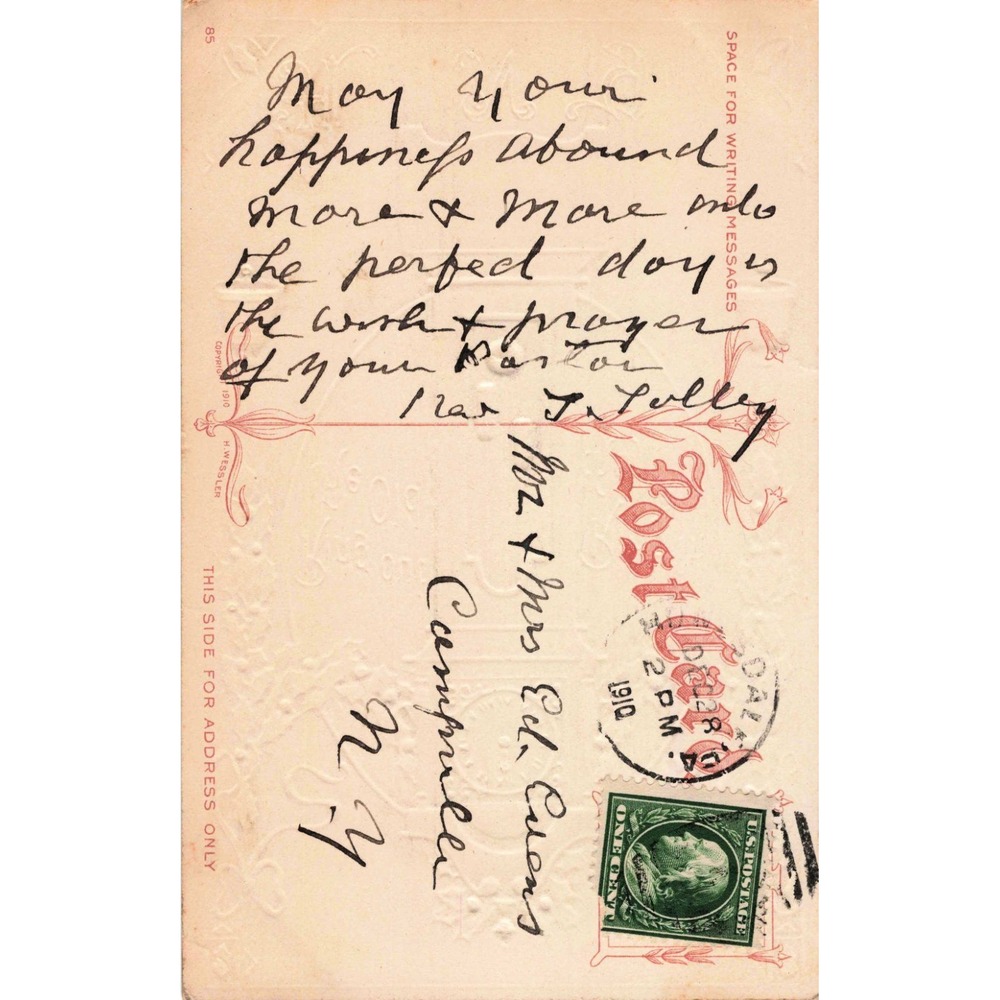 May your
happiness abound
more & more unto
the perfect day is
the wish & prayer
of your Pastor
Rev J. Tolley
SPACE FOR WRITING MESSAGES
85
COPYRIGHT 1910 H. WESSLER
THIS SIDE FOR ADDRESS ONLY
Post Card
Mr & Mrs Ed. Evens
Campville
N. Y
DEC 28
2 PM
1910
U.S. POSTAGE
ONE CENT